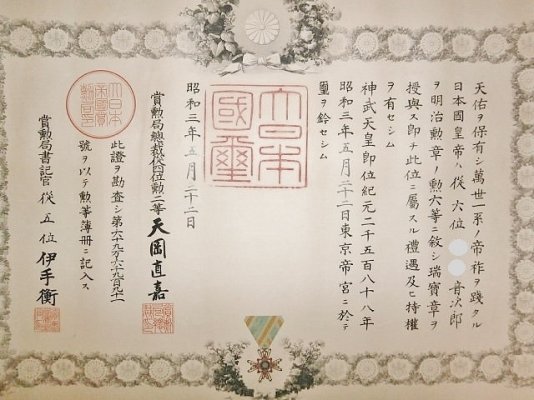 天佑ヲ保有シ萬世一系ノ帝祚ヲ踐タル
日本國皇帝ハ從六位 舟次郎
ヲ明治勲章ノ勲六等ニ敍シ瑞寶章ヲ
授與ス即チ此位ニ屬スル禮遇及ヒ特權
ヲ有セシム
神武天皇即位紀元二千五百八十八年
昭和三年五月二十二日東京帝宮ニ於テ
璽ヲ鈐セシム
大日本國璽
昭和三年五月二十二日
賞勲局總裁從四位勲二等天岡直嘉
大日本帝國賞勲局印
此證ヲ勘査シ第六十九万六千九百九十一
號ヲ以テ勲等簿冊ニ記入ス
賞勲局書記官從五位伊手衡